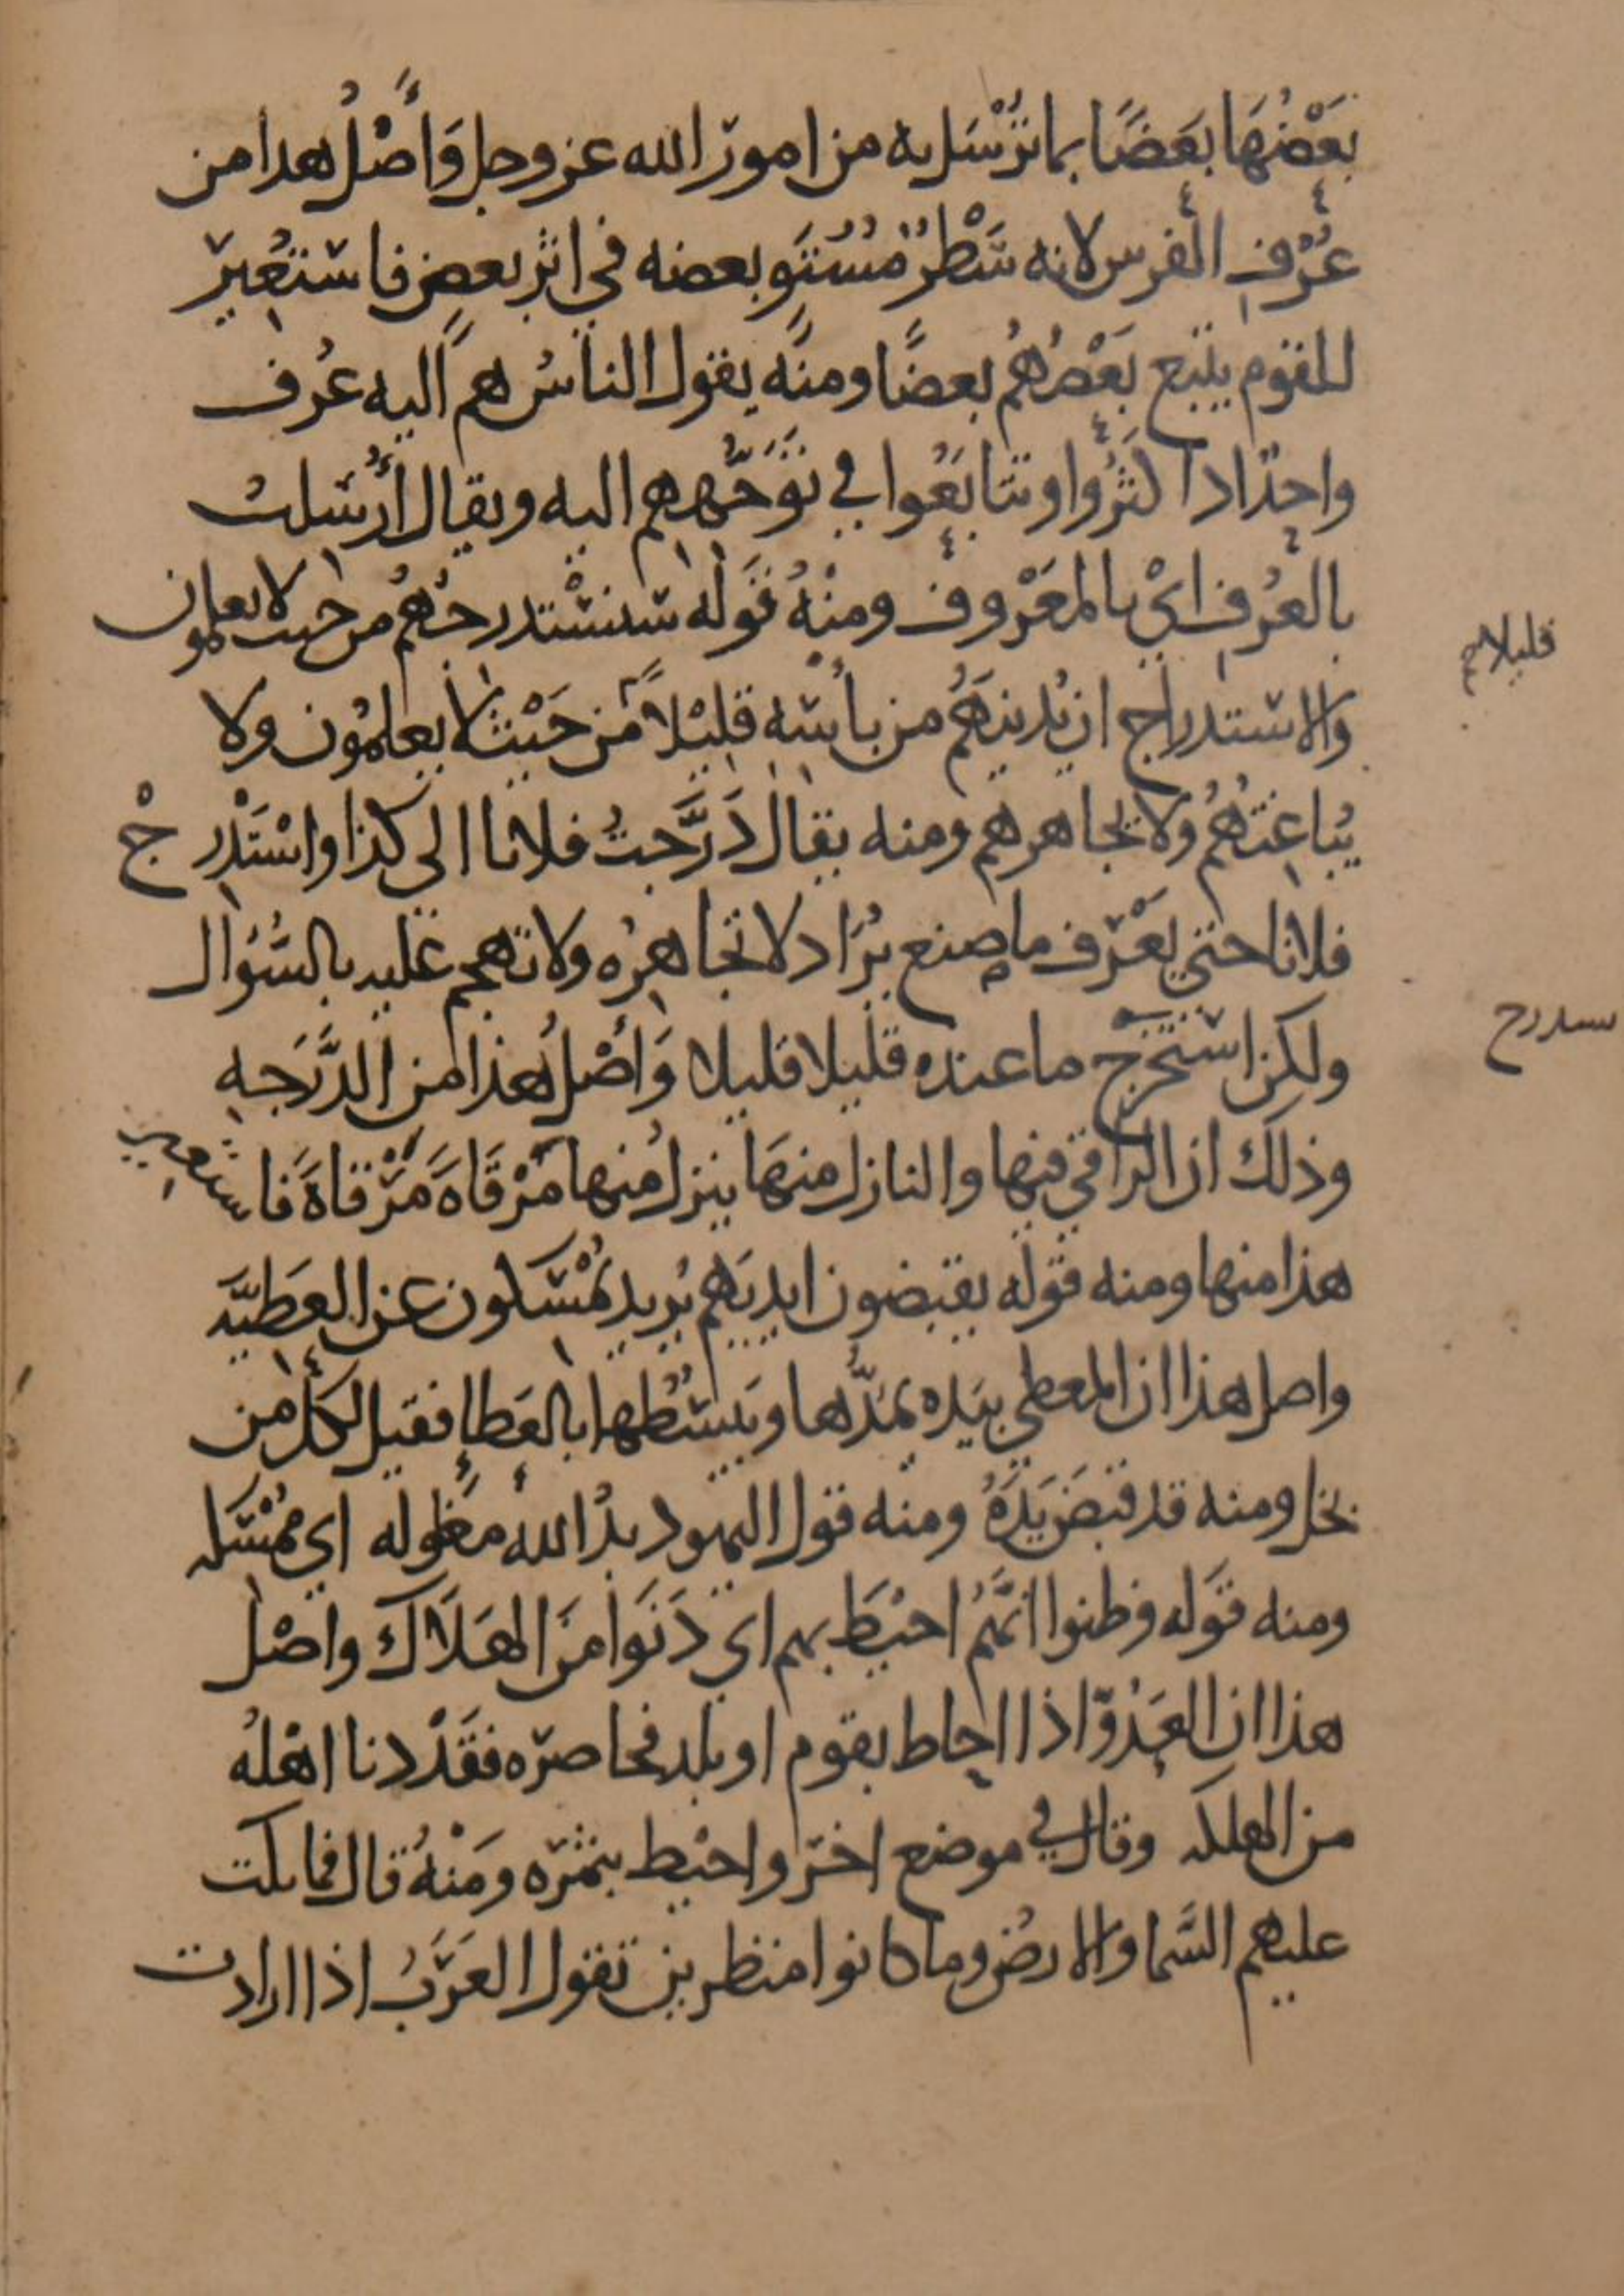 بَعْضُهَا بَعضًا بما تُرْسَل به من امور الله عز وجل وَأَصْلُ هدا من
عُرْفِ الفرس لانه سَطْرٌ مُسْتَوٍ بعضه في اثر بعض فاستُعِير
للقوم يتبع بَعْضُهُم بعضًا ومنه يقول الناسُ هم اليه عُرف
واحدٌ ادا كثُروا وتتابَعُوا في تَوَجُّههم اليه ويقال أَرْسلت
بالعُرفِ ايْ بالمعَرْوف ومنْهُ قَوله سنسْتدرجُهُم من حيث لا يعلمون
والاستدراج ان يُدنيَهُم من بأسه قليْلاً من حَيْث لا يعلمُون ولا
يُباغِتُهُم وَلا يجاهرهم ومنه يقال دَرَّجتُ فلانا الى كذا واسْتَدْرِجْ
فلانا حتى يَعْرف ما صنع يُرَاد لا تجاهِرُه ولا تهجم عليه بالسُّؤال
ولكن استخرج ما عنده قليلا قليلا وَأَصْلُ هذا من الدَّرَجه
وذلك ان الراقي فيها والنازل منهَا ينزل منها مَرْقَاةً مَرْقاةً فاستعير
هذا منها ومنه قوله يقبضون ايديَهم يُريد يُمْسكون عن العَطيَّه
واصل هذا ان المعطي بيَده يمُدُّها ويَبسُطها بالعَطا فقيل لكل من
بخل ومنه قد قبَضَ يَدَهُ ومنه قول اليهود يدُ الله مغلوله اي ممُسَكه
ومنه قَوله وظنوا انَّهُم احيْط بهم اي دَنَوا منَ الهَلَاك واصْل
هذا ان العَدُوّ اذا احاط بقوم او بلد فحاصره فقَدْ دنا اهْلهُ
من الهلكه وقال في موضع اخر واحيْط بثمَره ومَنْهُ قال فما بكت
عليهم السَّما والارض وما كانوا منظرين تقول العَرَبُ اذا ارادت
قليلا